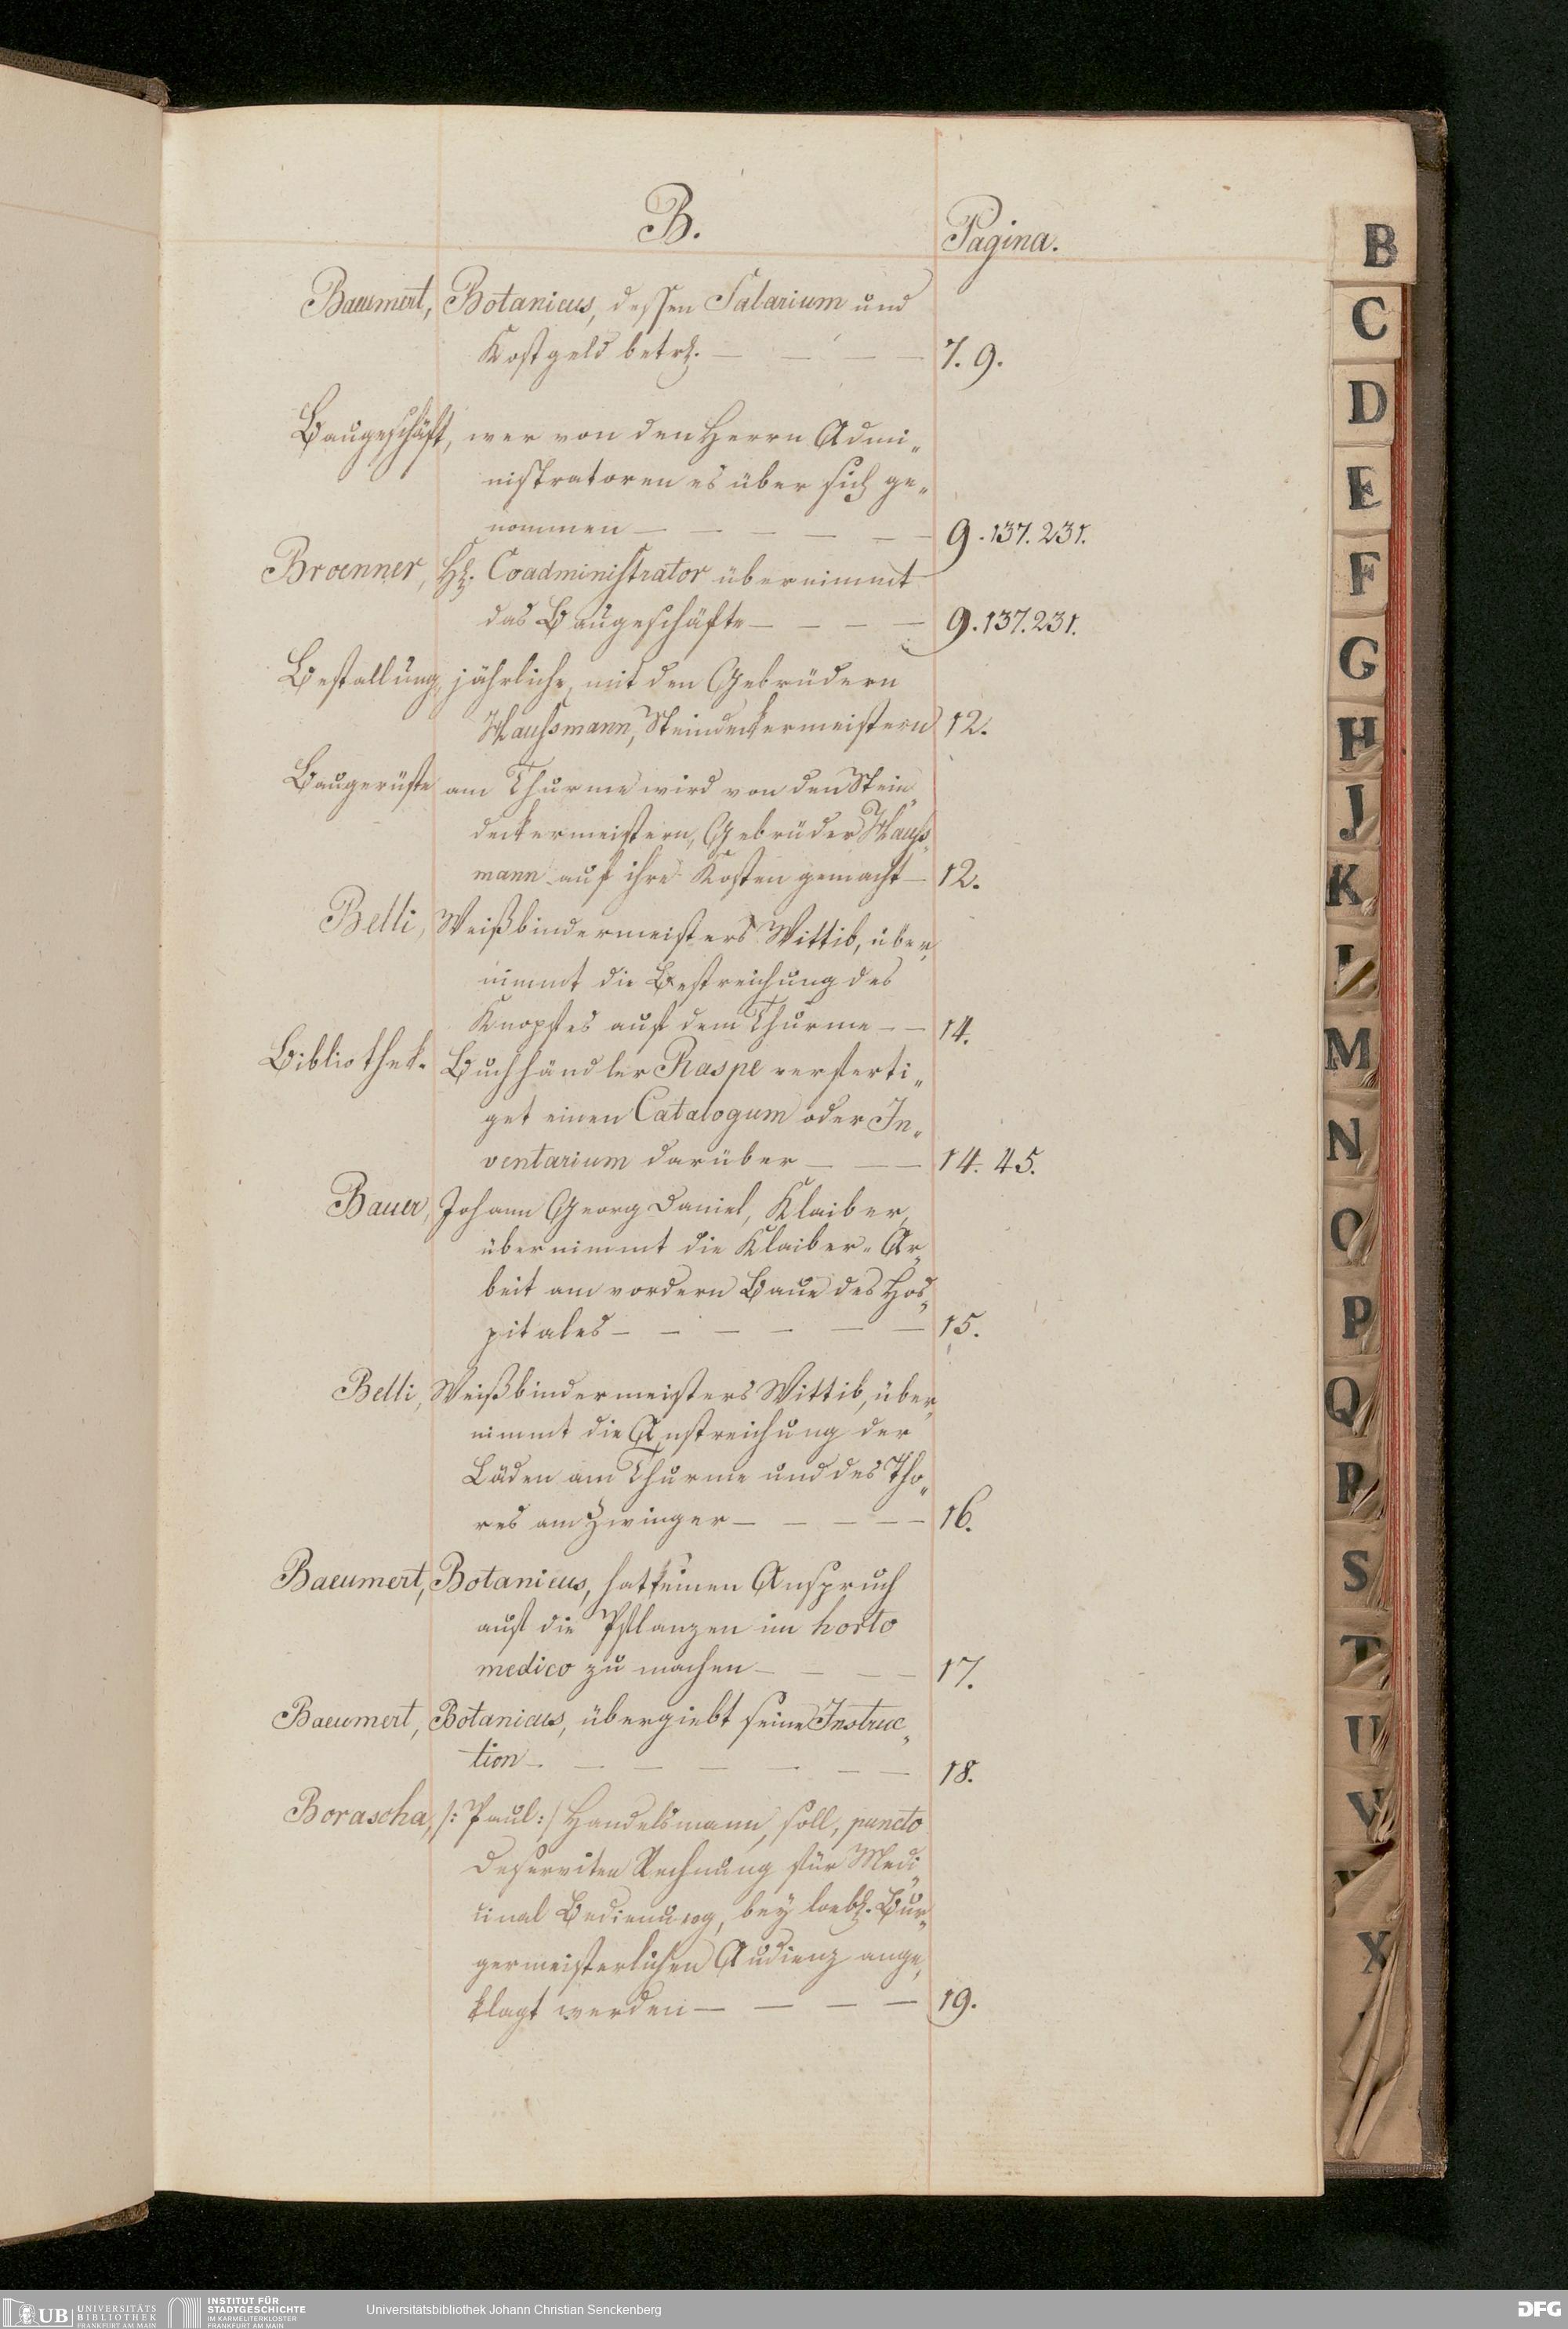 B.
Pagina.
Baeumert, Botanicus, dessen Salarium und
Kostgeld betrf. — — — — 7. 9.
Baugeschäft, wer von den Herrn Admi„
nistratoren es über sich ge„
nommen — — — — — — 9. 137. 231.
Broenner, H. Coadministrator übernimmt
das Baugeschäfte — — — — 9. 137. 231.
Bestallung, jährliche, mit den Gebrüdern
Haussmann, Steindeckermeistern 12.
Baugerüste am Thurme wird von den Stein„
deckermeistern, Gebrüder Hauss„
mann auf ihre Kosten gemacht — 12.
Belli, Weißbindermeisters Wittib, über„
nimmt die Bestreichung des
Knopfes auf dem Thurme — — 14.
Bibliothek. Buchhändler Raspe verferti„
get einen Catalogum oder In„
ventarium darüber — — — 14. 45.
Bauer, Johann Georg Daniel, Klaiber,
übernimmt die Klaiber-Ar„
beit am vordern Baue des Hos„
pitales — — — — — — 15.
Belli, Weißbindermeisters Wittib, über„
nimmt die Anstreichung der
Läden am Thurme und des Tho„
res am Zwinger — — — — — 16.
Baeumert, Botanicus, hat keinen Anspruch
auf die Pflanzen im horto
medico zu machen — — — — 17.
Baeumert, Botanicus, übergiebt seine Instruc„
tion — — — — — — — 18.
Borascha, /: Paul :/ Handelsmann, soll, puncto
Deserviten Rechnung für Medi„
cinal Bedienung, bey loebl. Bur„
germeisterlichen Audienz ange„
klagt werden — — — — 19.
B
C
D
E
F
G
H
J
K
L
M
N
O
P
Q
R
S
T
U
V
X
UB UNIVERSITÄTS
BIBLIOTHEK
FRANKFURT AM MAIN
INSTITUT FÜR
STADTGESCHICHTE
IM KARMELITERKLOSTER
FRANKFURT AM MAIN
Universitätsbibliothek Johann Christian Senckenberg
DFG